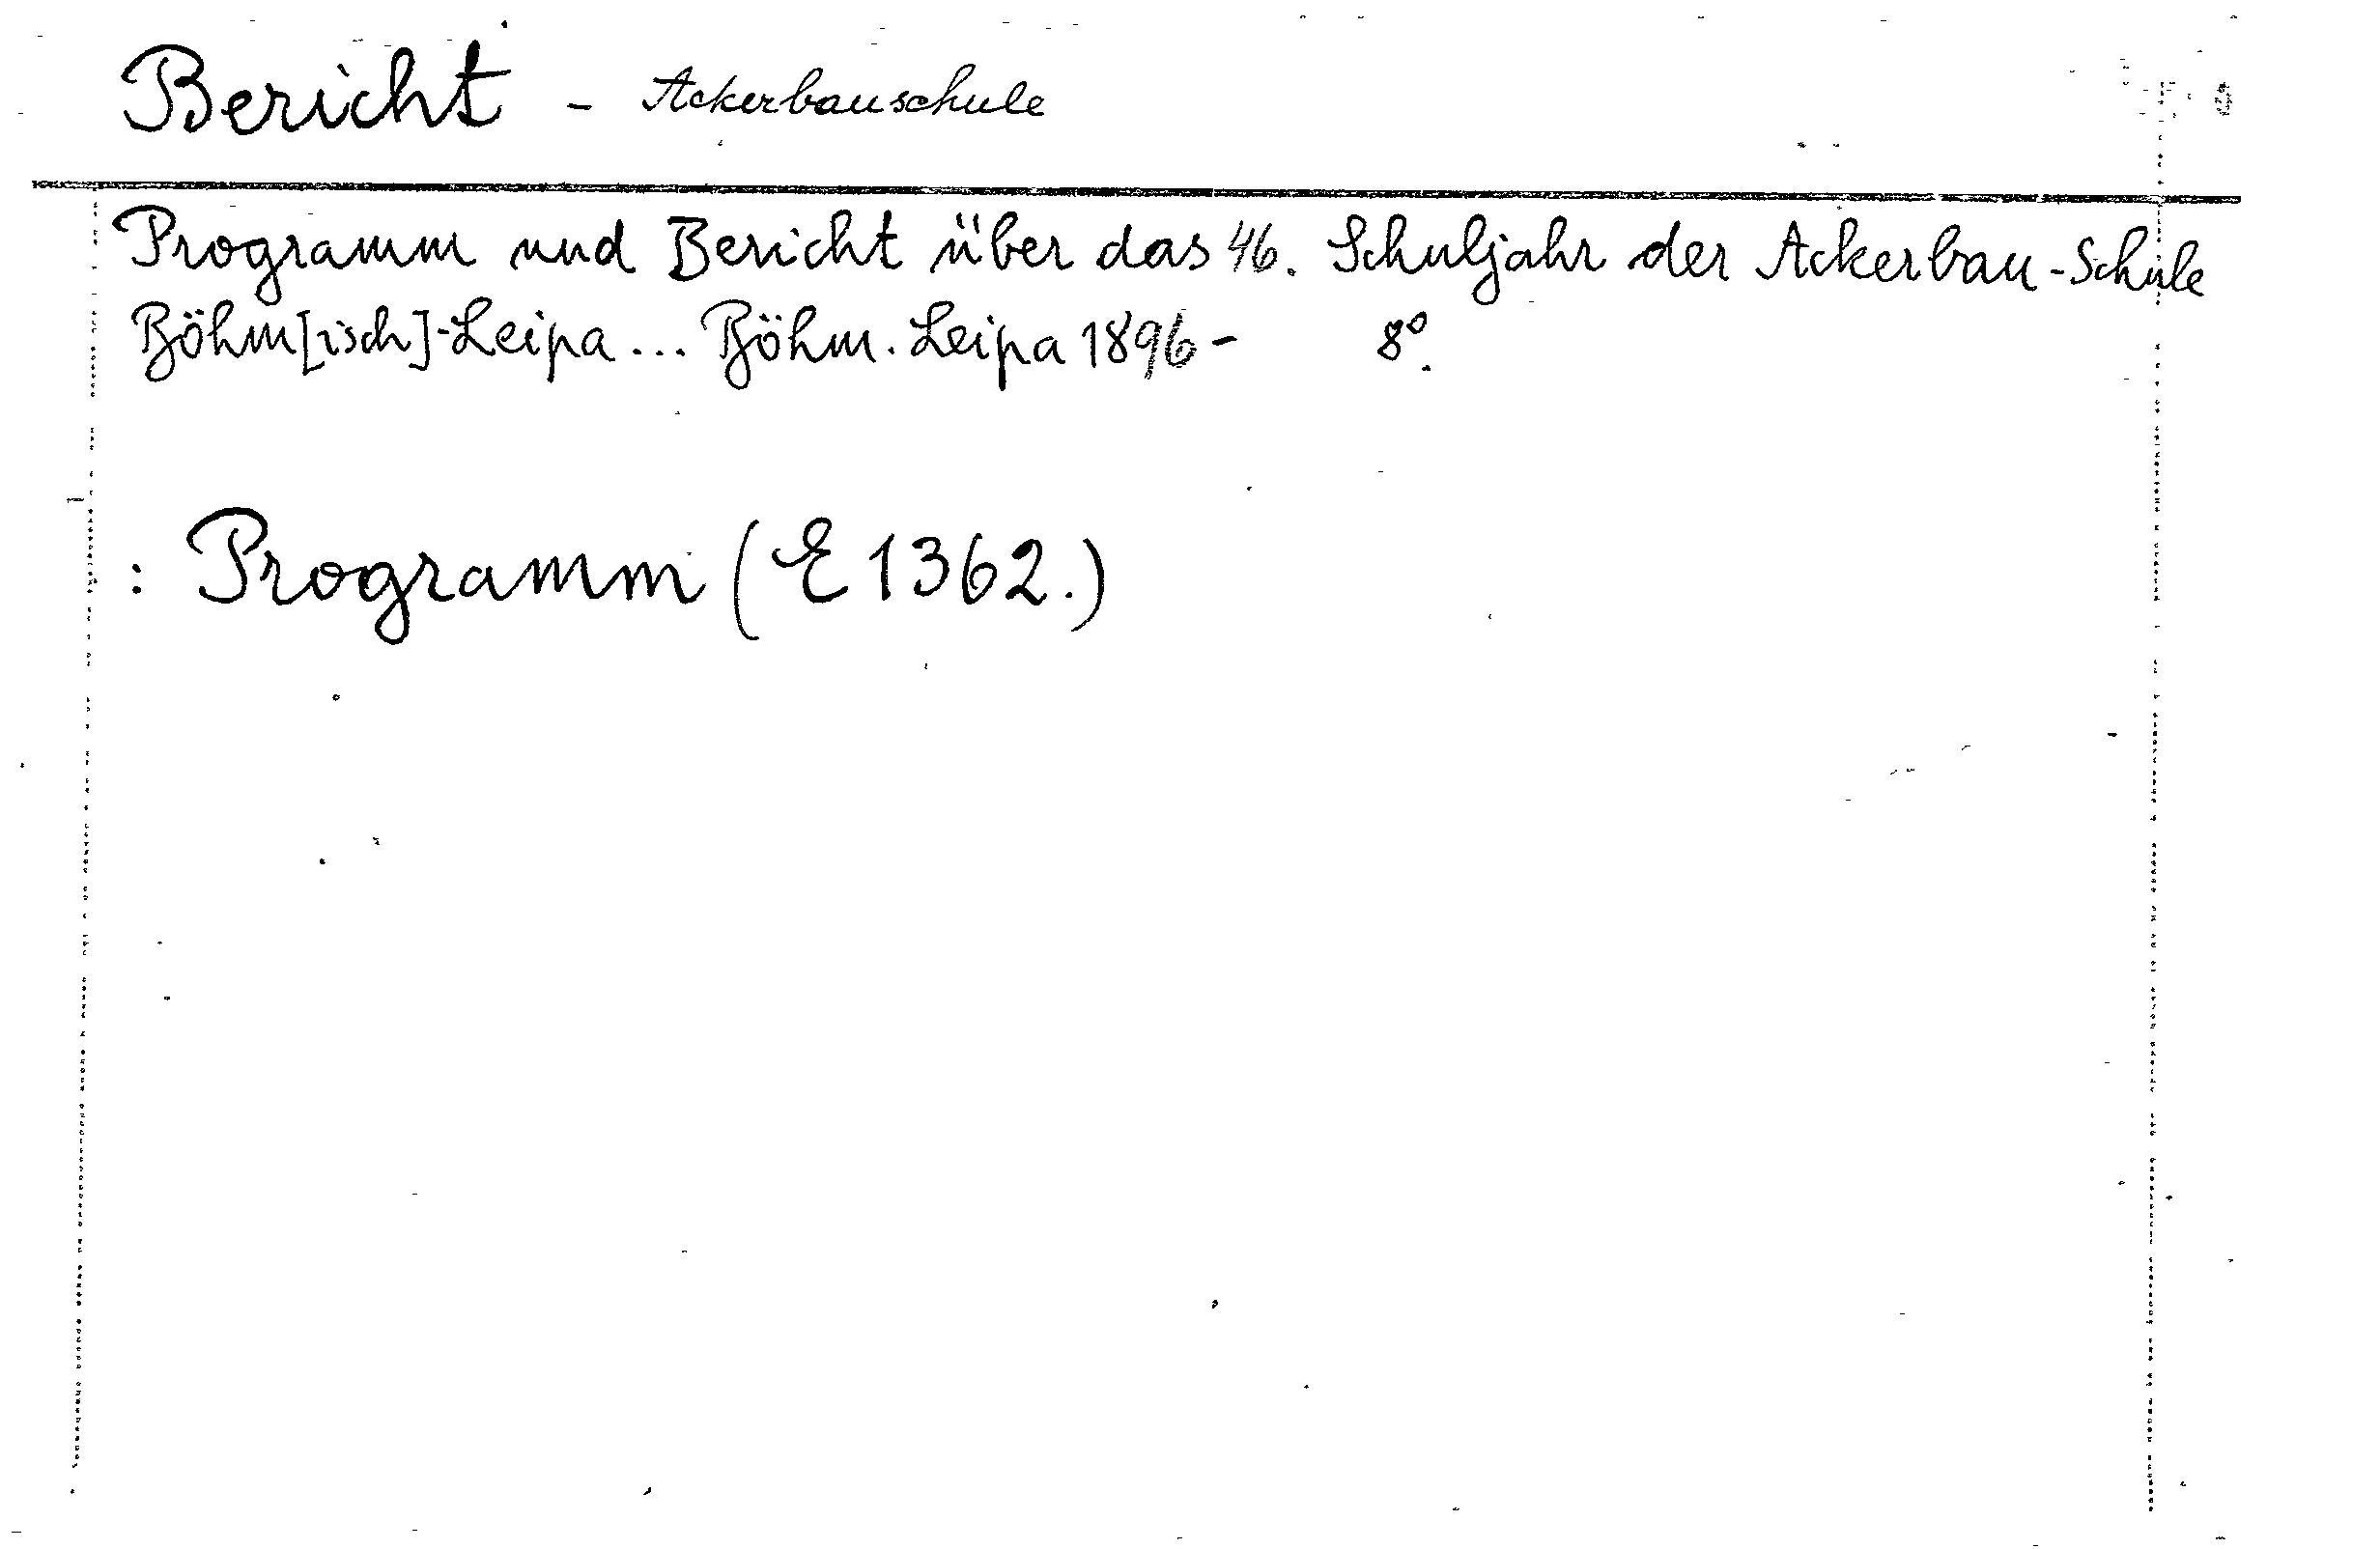 Bericht - Ackerbauschule
Programm und Bericht über das 46. Schuljahr der Ackerbau-Schule
Böhm[isch]-Leipa... Böhm. Leipa 1896- 8°.
: Programm (E 1362.)